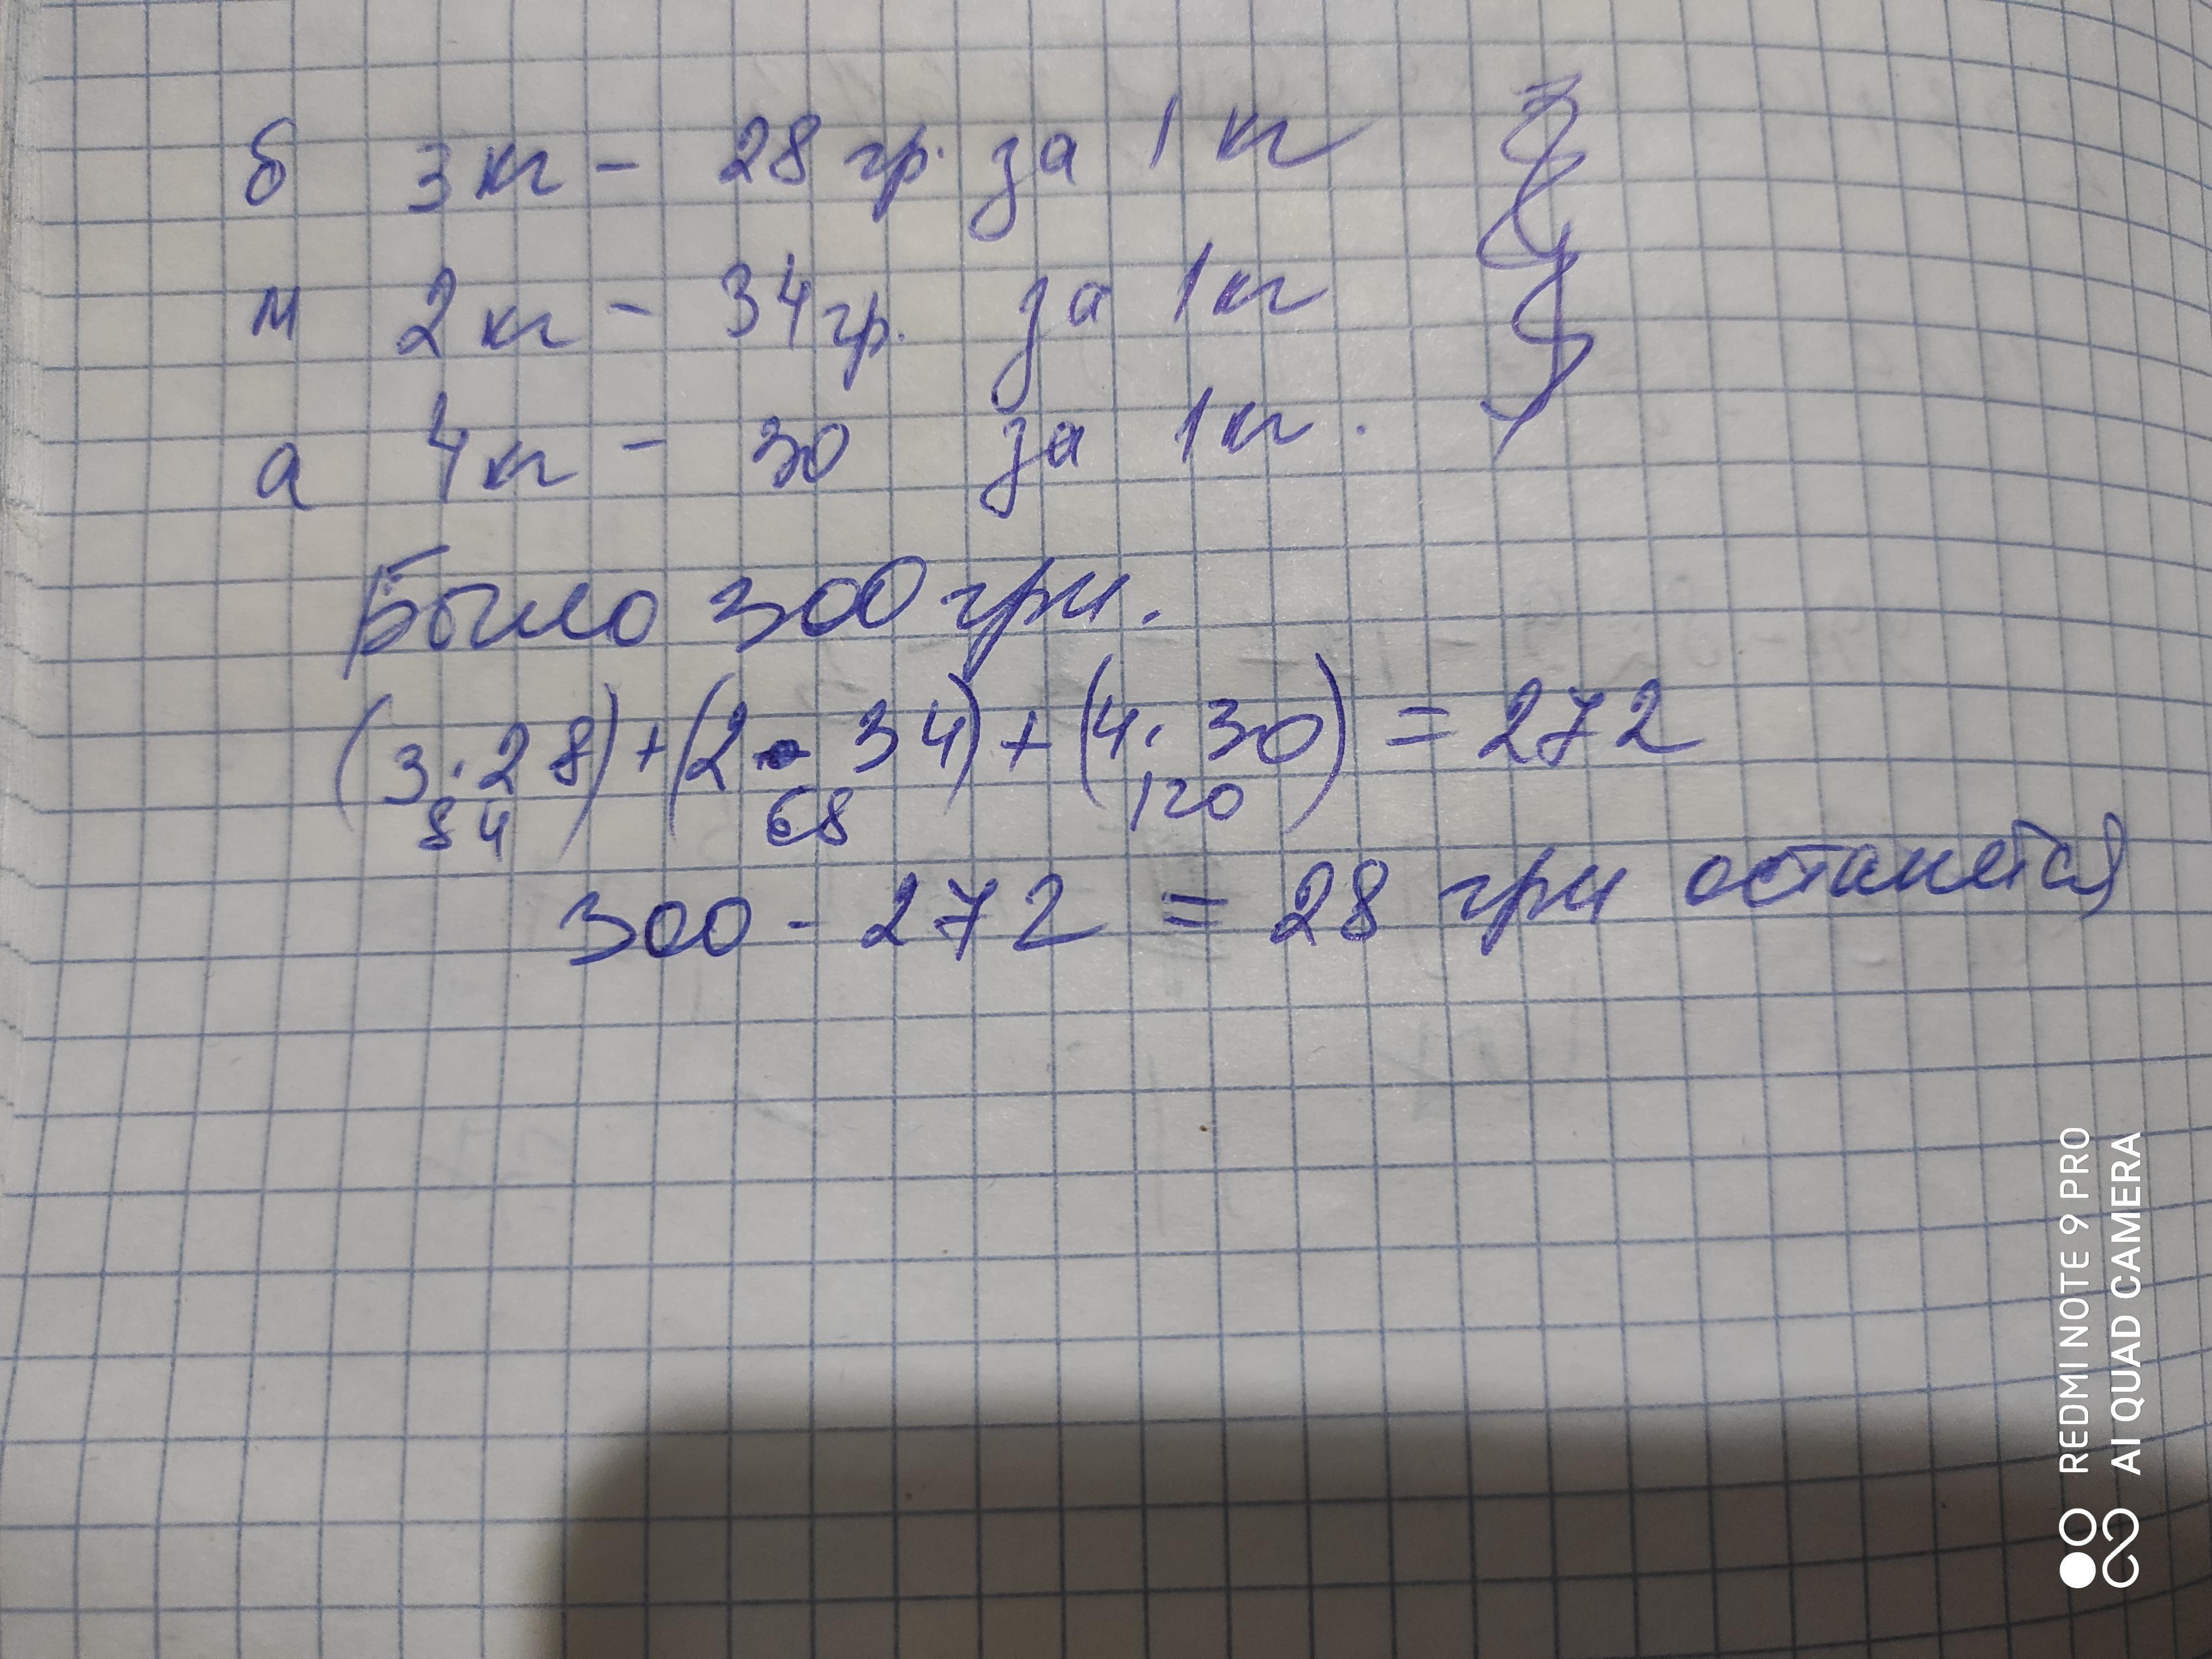 б 3 кг - 28 гр. за 1 кг
м 2 кг - 34 гр. за 1 кг
а 4 кг - 30 за 1 кг.
Было 300 грн.
(3·28)+(2·34)+(4·30)=272
84 68 120
300 - 272 = 28 грн останется
REDMI NOTE 9 PRO
AI QUAD CAMERA